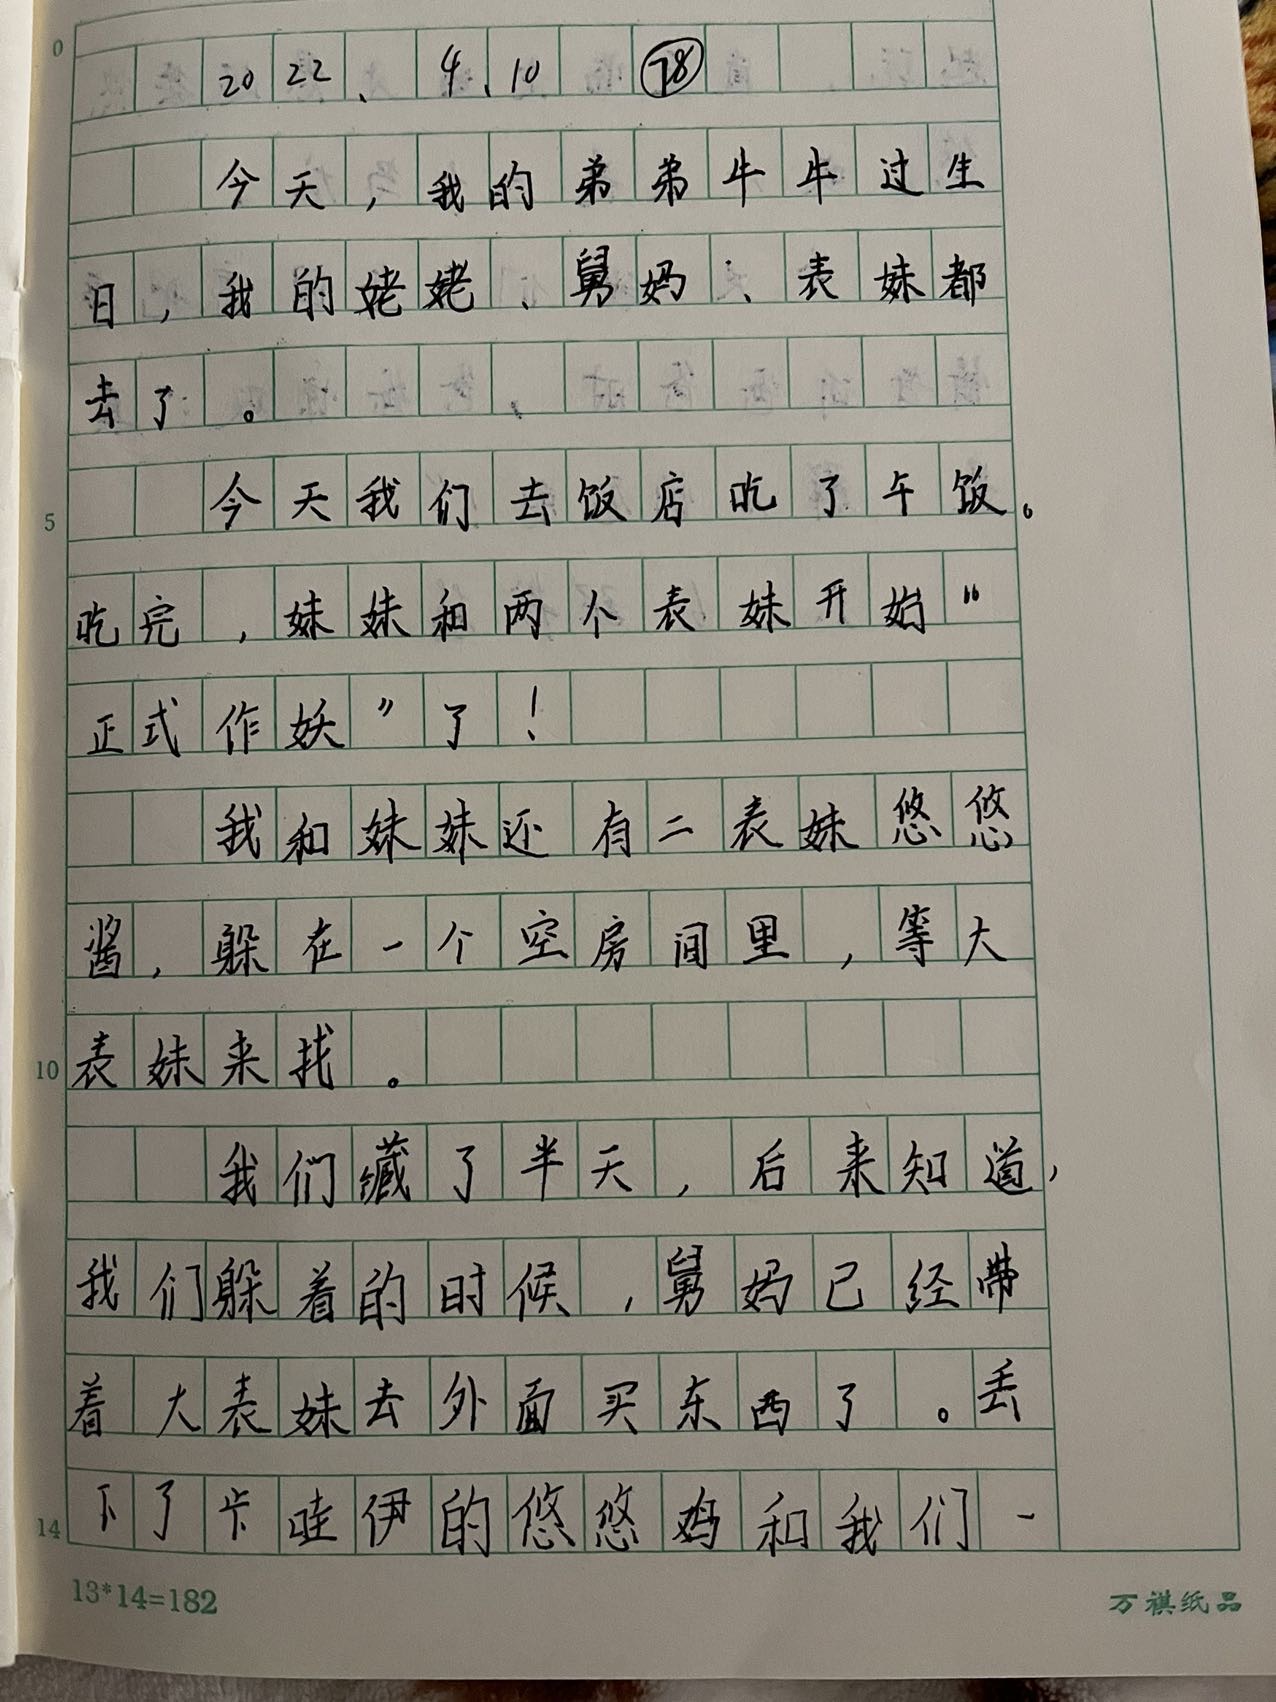 0
2022、4.10 78
今天,我的弟弟牛牛过生
日,我的姥姥、舅妈、表妹都
去了。
5 今天我们去饭店吃了午饭。
吃完,妹妹和两个表妹开始“
正式作妖”了!
我和妹妹还有二表妹悠悠
酱,躲在一个空房间里,等大
10 表妹来找。
我们藏了半天,后来知道,
我们躲着的时候,舅妈已经带
着大表妹去外面买东西了。丢
14 下了卡哇伊的悠悠妈和我们一
13*14=182 万祺纸品